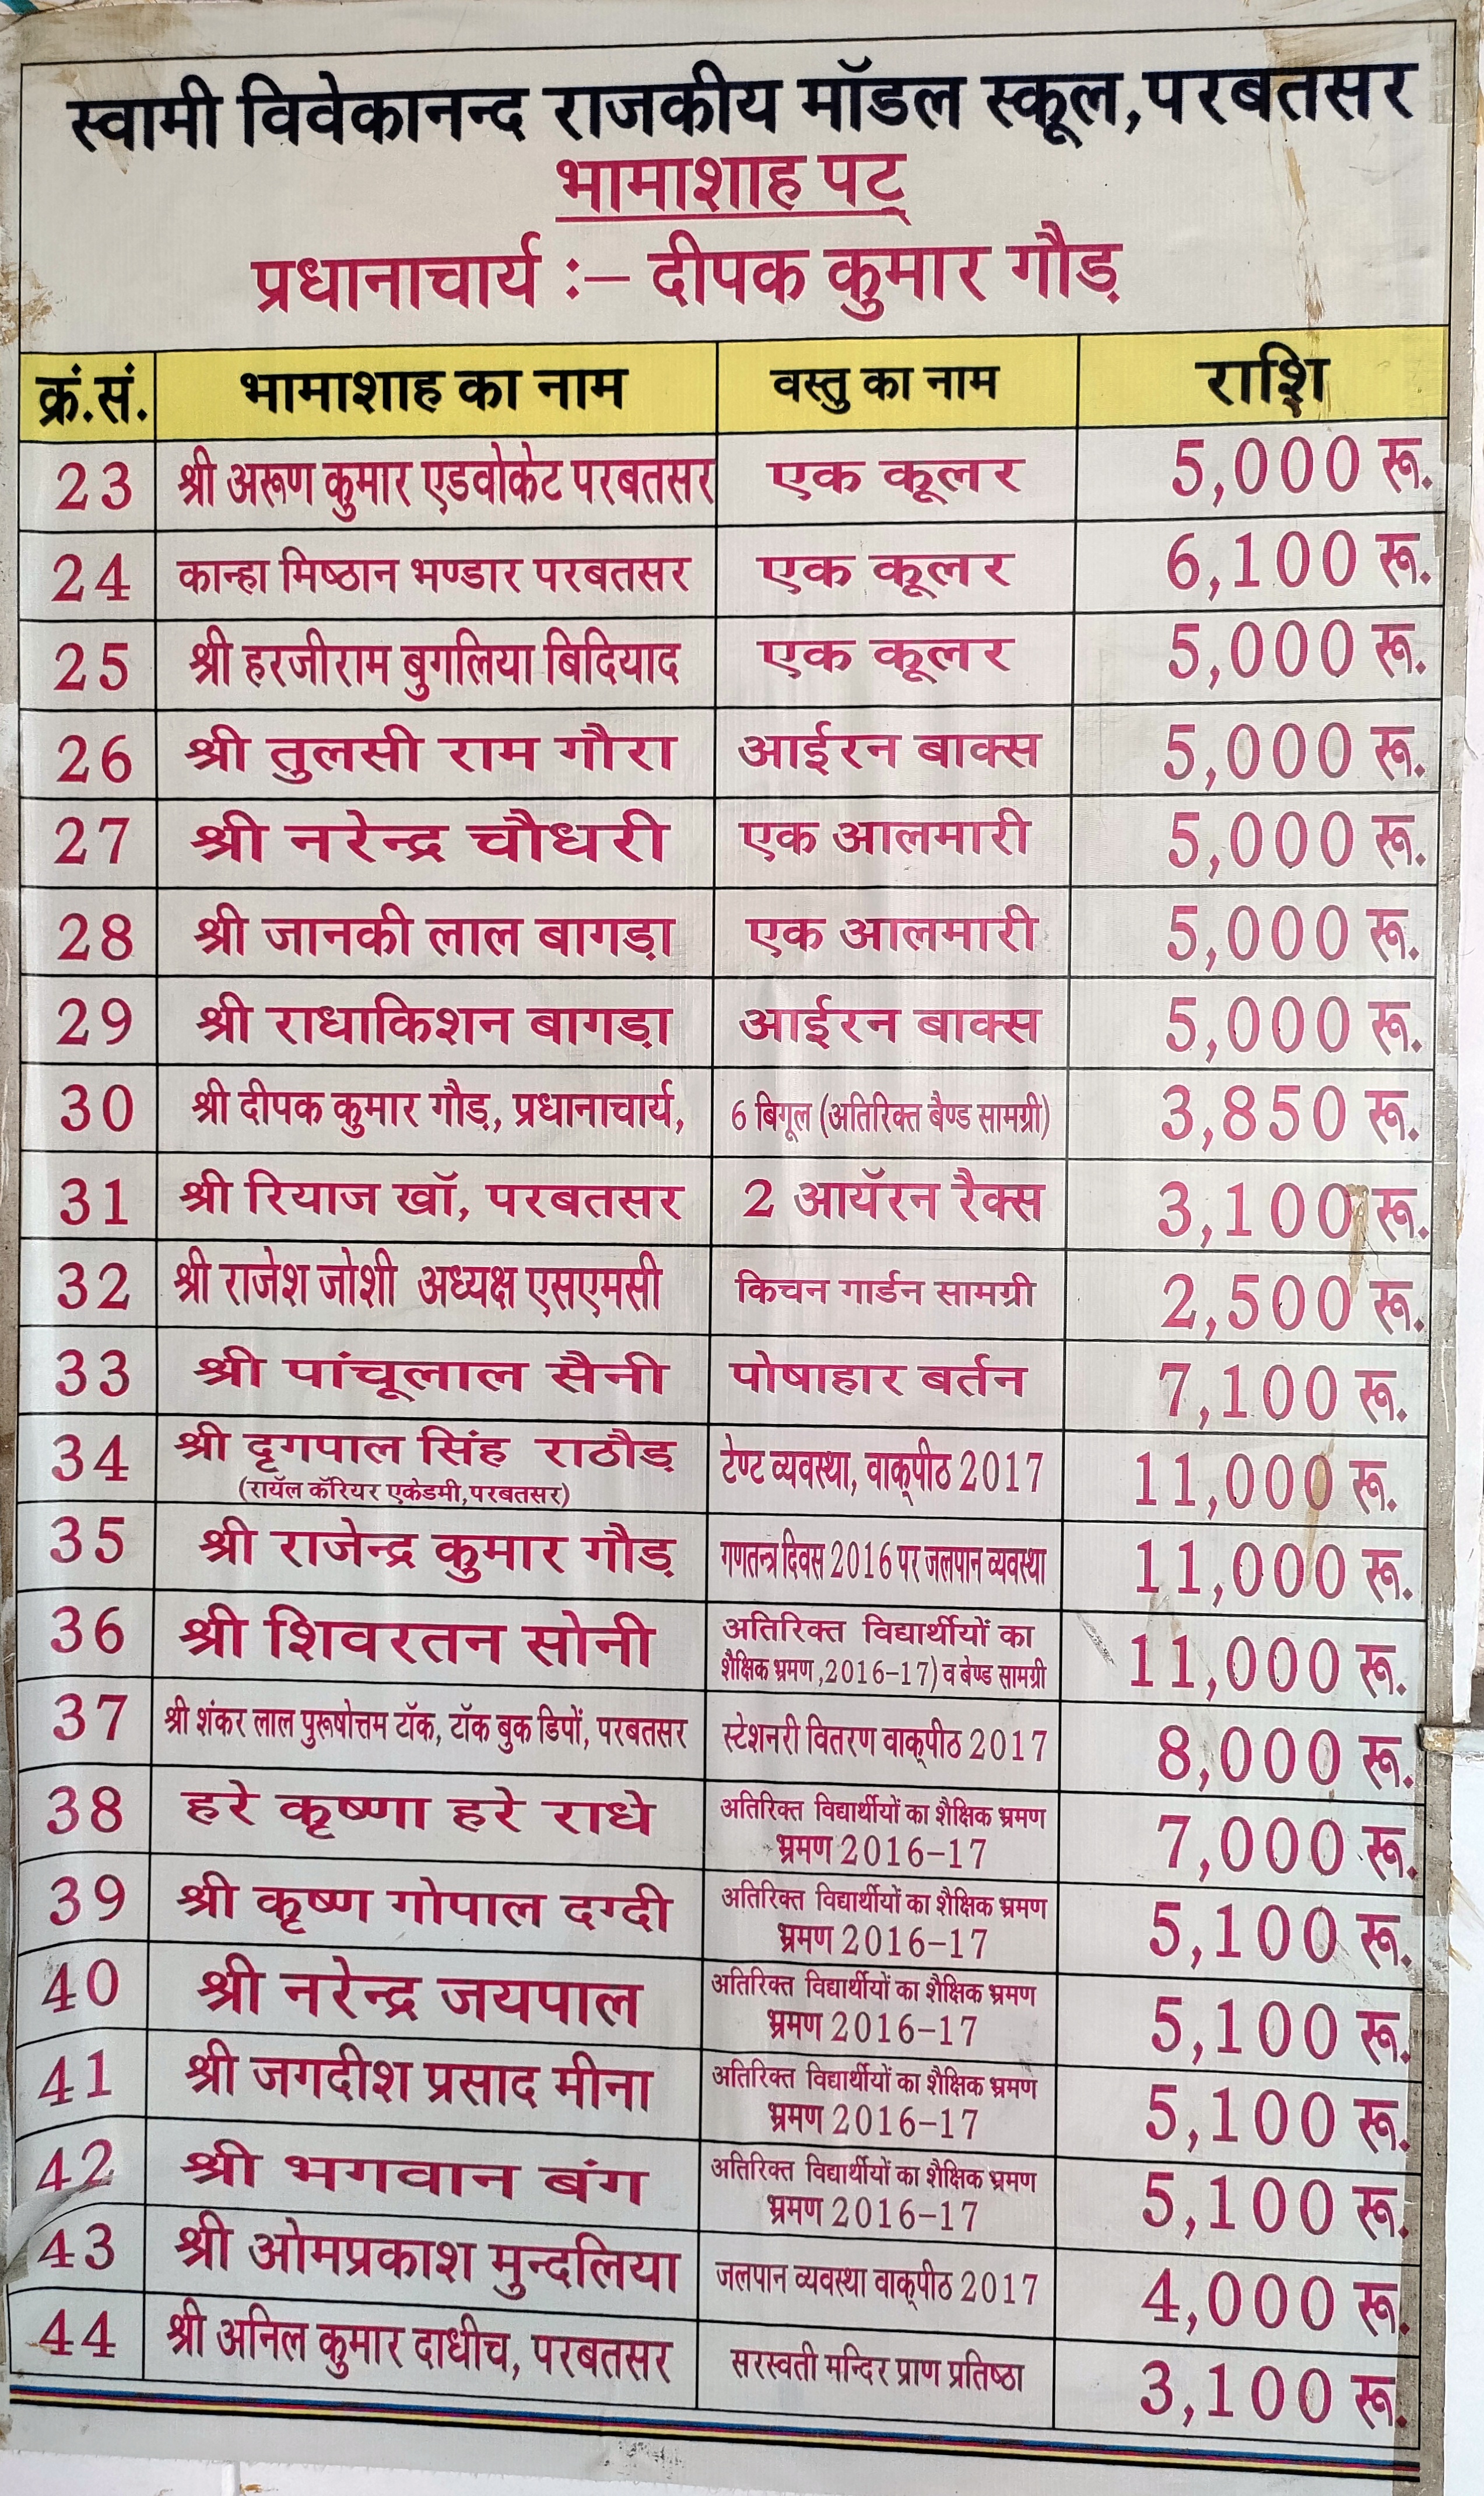 स्वामी विवेकानन्द राजकीय मॉडल स्कूल,परबतसर
भामाशाह पट्
प्रधानाचार्य :– दीपक कुमार गौड़
क्रं.सं. भामाशाह का नाम वस्तु का नाम राशि
23 श्री अरूण कुमार एडवोकेट परबतसर एक कूलर 5,000 रू.
24 कान्हा मिष्ठान भण्डार परबतसर एक कूलर 6,100 रू.
25 श्री हरजीराम बुगलिया बिदियाद एक कूलर 5,000 रू.
26 श्री तुलसी राम गौरा आईरन बाक्स 5,000 रू.
27 श्री नरेन्द्र चौधरी एक आलमारी 5,000 रू.
28 श्री जानकी लाल बागड़ा एक आलमारी 5,000 रू.
29 श्री राधाकिशन बागड़ा आईरन बाक्स 5,000 रू.
30 श्री दीपक कुमार गौड़, प्रधानाचार्य, 6 बिगूल (अतिरिक्त बैण्ड सामग्री) 3,850 रू.
31 श्री रियाज खॉ, परबतसर 2 आयॅरन रैक्स 3,100 रू.
32 श्री राजेश जोशी अध्यक्ष एसएमसी किचन गार्डन सामग्री 2,500 रू.
33 श्री पांचूलाल सैनी पोषाहार बर्तन 7,100 रू.
34 श्री दृगपाल सिंह राठौड़ टेण्ट व्यवस्था, वाक्‌पीठ 2017 11,000 रू.
(रायॅल कॅरियर एकेडमी,परबतसर)
35 श्री राजेन्द्र कुमार गौड़ गणतन्त्र दिवस 2016 पर जलपान व्यवस्था 11,000 रू.
36 श्री शिवरतन सोनी अतिरिक्त विद्यार्थीयों का 11,000 रू.
शैक्षिक भ्रमण,2016–17) व बेण्ड सामग्री
37 श्री शंकर लाल पुरूषोत्तम टॉक, टॉक बुक डिपों, परबतसर स्टेशनरी वितरण वाक्‌पीठ 2017 8,000 रू.
38 हरे कृष्णा हरे राधे अतिरिक्त विद्यार्थीयों का शैक्षिक भ्रमण 7,000 रू.
भ्रमण 2016–17
39 श्री कृष्ण गोपाल दग्दी अतिरिक्त विद्यार्थीयों का शैक्षिक भ्रमण 5,100 रू.
भ्रमण 2016–17
40 श्री नरेन्द्र जयपाल अतिरिक्त विद्यार्थीयों का शैक्षिक भ्रमण 5,100 रू.
भ्रमण 2016–17
41 श्री जगदीश प्रसाद मीना अतिरिक्त विद्यार्थीयों का शैक्षिक भ्रमण 5,100 रू.
भ्रमण 2016–17
42 श्री भगवान बंग अतिरिक्त विद्यार्थीयों का शैक्षिक भ्रमण 5,100 रू.
भ्रमण 2016–17
43 श्री ओमप्रकाश मुन्दलिया जलपान व्यवस्था वाक्‌पीठ 2017 4,000 रू.
44 श्री अनिल कुमार दाधीच, परबतसर सरस्वती मन्दिर प्राण प्रतिष्ठा 3,100 रू.